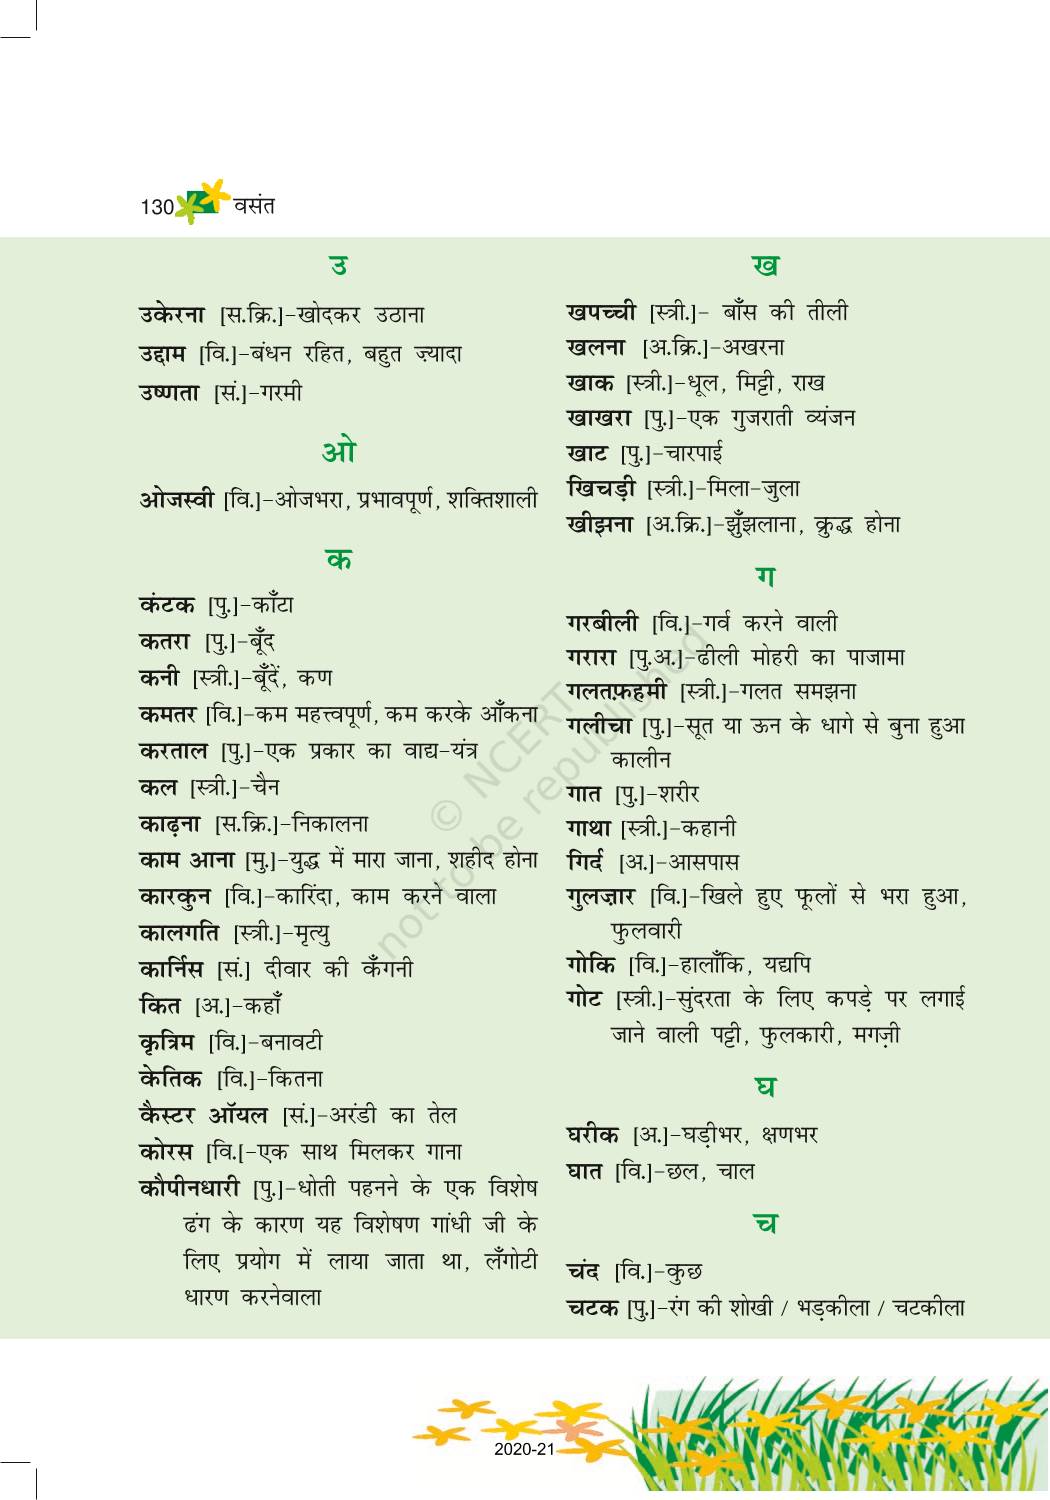 130 वसंत
उ
उकेरना [स.क्रि.]–खोदकर उठाना
उद्दाम [वि.]–बंधन रहित, बहुत ज़्यादा
उष्णता [सं.]–गरमी
ओ
ओजस्वी [वि.]–ओजभरा, प्रभावपूर्ण, शक्तिशाली
क
कंटक [पु.]–काँटा
कतरा [पु.]–बूँद
कनी [स्त्री.]–बूँदें, कण
कमतर [वि.]–कम महत्त्वपूर्ण, कम करके आँकना
करताल [पु.]–एक प्रकार का वाद्य–यंत्र
कल [स्त्री.]–चैन
काढ़ना [स.क्रि.]–निकालना
काम आना [मु.]–युद्ध में मारा जाना, शहीद होना
कारकुन [वि.]–कारिंदा, काम करने वाला
कालगति [स्त्री.]–मृत्यु
कार्निस [सं.] दीवार की कँगनी
कित [अ.]–कहाँ
कृत्रिम [वि.]–बनावटी
केतिक [वि.]–कितना
कैस्टर ऑयल [सं.]–अरंडी का तेल
कोरस [वि.[–एक साथ मिलकर गाना
कौपीनधारी [पु.]–धोती पहनने के एक विशेष
ढंग के कारण यह विशेषण गांधी जी के
लिए प्रयोग में लाया जाता था, लँगोटी
धारण करनेवाला
ख
खपच्ची [स्त्री.]– बाँस की तीली
खलना [अ.क्रि.]–अखरना
खाक [स्त्री.]–धूल, मिट्टी, राख
खाखरा [पु.]–एक गुजराती व्यंजन
खाट [पु.]–चारपाई
खिचड़ी [स्त्री.]–मिला–जुला
खीझना [अ.क्रि.]–झुँझलाना, क्रुद्ध होना
ग
गरबीली [वि.]–गर्व करने वाली
गरारा [पु.अ.]–ढीली मोहरी का पाजामा
गलतफ़हमी [स्त्री.]–गलत समझना
गलीचा [पु.]–सूत या ऊन के धागे से बुना हुआ
कालीन
गात [पु.]–शरीर
गाथा [स्त्री.]–कहानी
गिर्द [अ.]–आसपास
गुलज़ार [वि.]–खिले हुए फूलों से भरा हुआ,
फुलवारी
गोकि [वि.]–हालाँकि, यद्यपि
गोट [स्त्री.]–सुंदरता के लिए कपड़े पर लगाई
जाने वाली पट्टी, फुलकारी, मगज़ी
घ
घरीक [अ.]–घड़ीभर, क्षणभर
घात [वि.]–छल, चाल
च
चंद [वि.]–कुछ
चटक [पु.]–रंग की शोखी / भड़कीला / चटकीला
© NCERT
not to be republished
2020-21